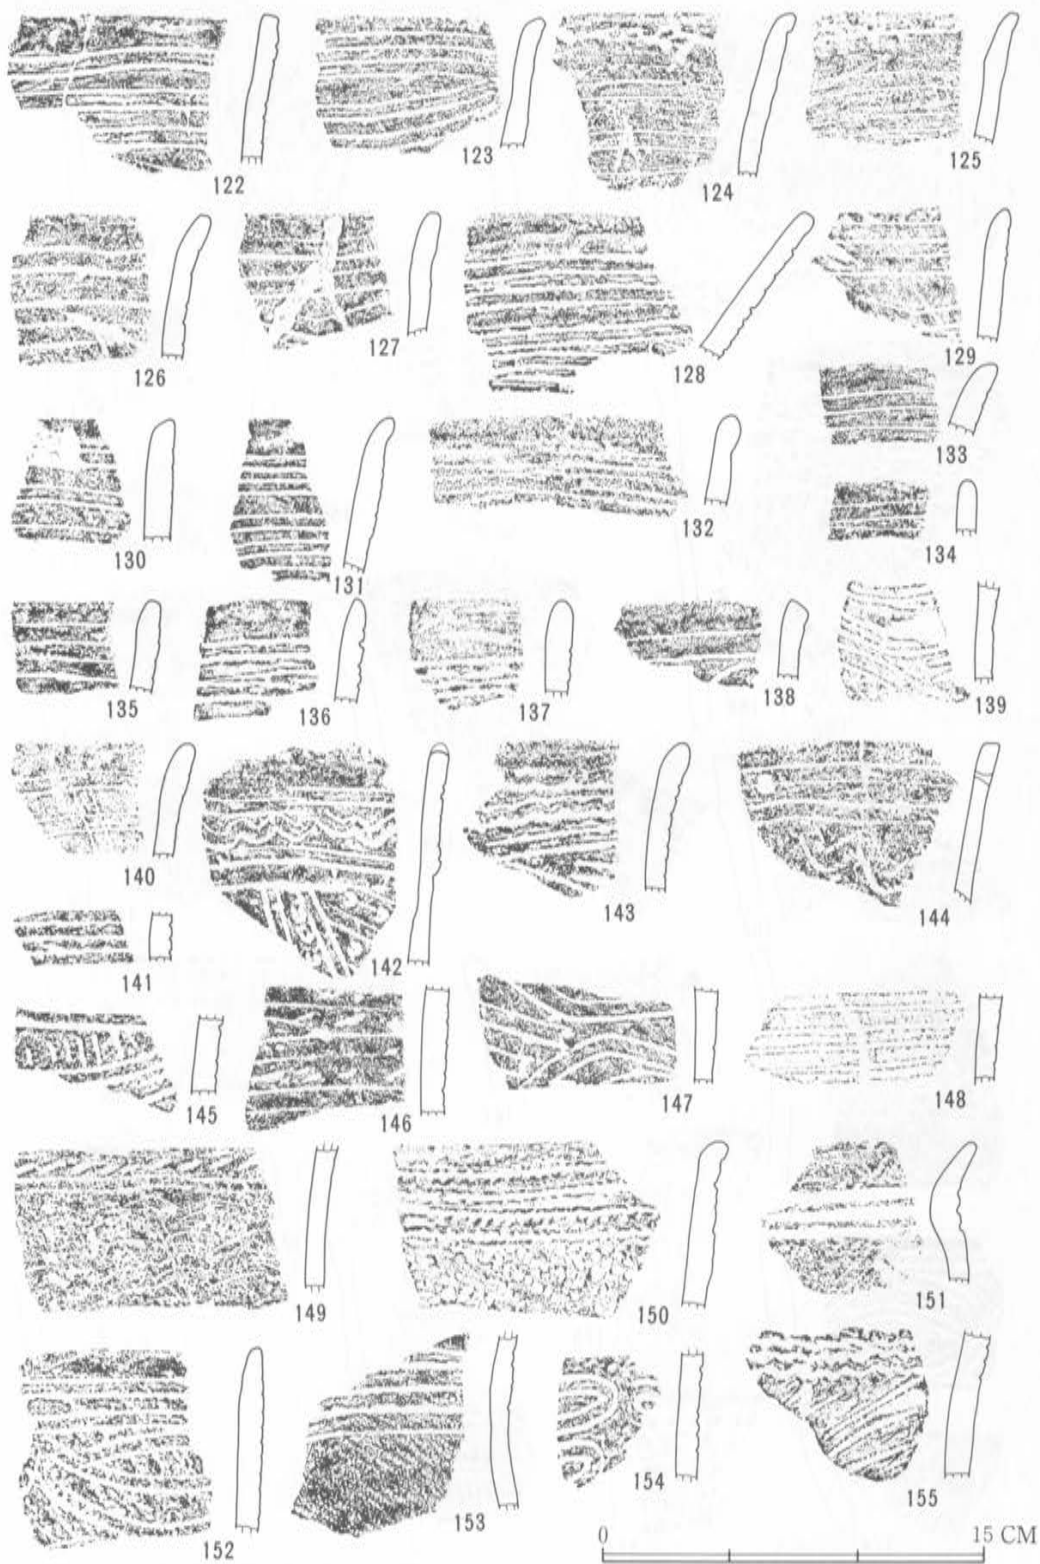 122 123 124 125
126 127 128 129
133
130 131 132 134
135 136 137 138 139
140 141 142 143 144
145 146 147 148
149 150 151
152 153 154 155
0 15 CM